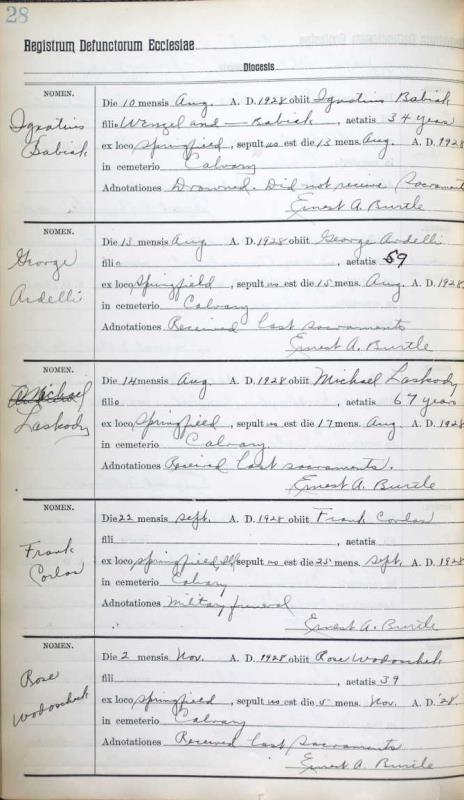 28
Registrum Defunctorum Ecclesiae
Diocesis
NOMEN.
Ignatius
Babiak
Die 10 mensis Aug. A. D. 1928 obiit Ignatius Babiak
filio Wenzel and — Babiak, aetatis 34 years
ex loco Springfield, sepult us est die 13 mens. Aug. A. D. 1928
in cemeterio Calvary
Adnotationes Drowned. Did not receive Sacrament
Ernest A. Burtle
NOMEN.
George
Ardelli
Die 13 mensis Aug A. D. 1928 obiit George Ardelli
filio , aetatis 59
ex loco Springfield, sepult us est die 15 mens. Aug A. D. 1928.
in cemeterio Calvary
Adnotationes Received last sacraments
Ernest A. Burtle
NOMEN.
Michael
Laskody
Die 14 mensis Aug, A. D. 1928 obiit Michael Laskody
filio , aetatis 67 years
ex loco Springfield, sepult us est die 17 mens. Aug A. D. 1928
in cemeterio Calvary.
Adnotationes Received last sacraments.
Ernest A. Burtle
NOMEN.
Frank
Corlas
Die 22 mensis Sept. A. D. 1928 obiit Frank Corlas
fili , aetatis
ex loco Springfield, Ill, sepult us est die 25 mens. Sept. A. D. 1928
in cemeterio Calvary
Adnotationes Military funeral
Ernest A. Burtle
NOMEN.
Rose
Wodoschek
Die 2 mensis Nov. A. D. 1928 obiit Rose Wodoschek
fili , aetatis 39
ex loco Springfield, sepult us est die 5 mens. Nov. A. D. '28.
in cemeterio Calvary
Adnotationes Received last sacraments
Ernest A. Burtle